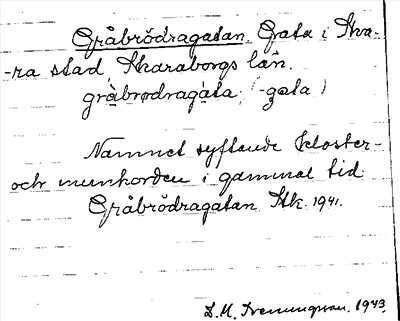 Gråbrödragatan. Gata i Ska-
-ra stad, Skaraborgs län.
gràbrødragáta, (-gata)
Namnet syftande kloster-
och munkorden i gammal tid.
Gråbrödragatan Stk. 1941.
L.M. 1943.